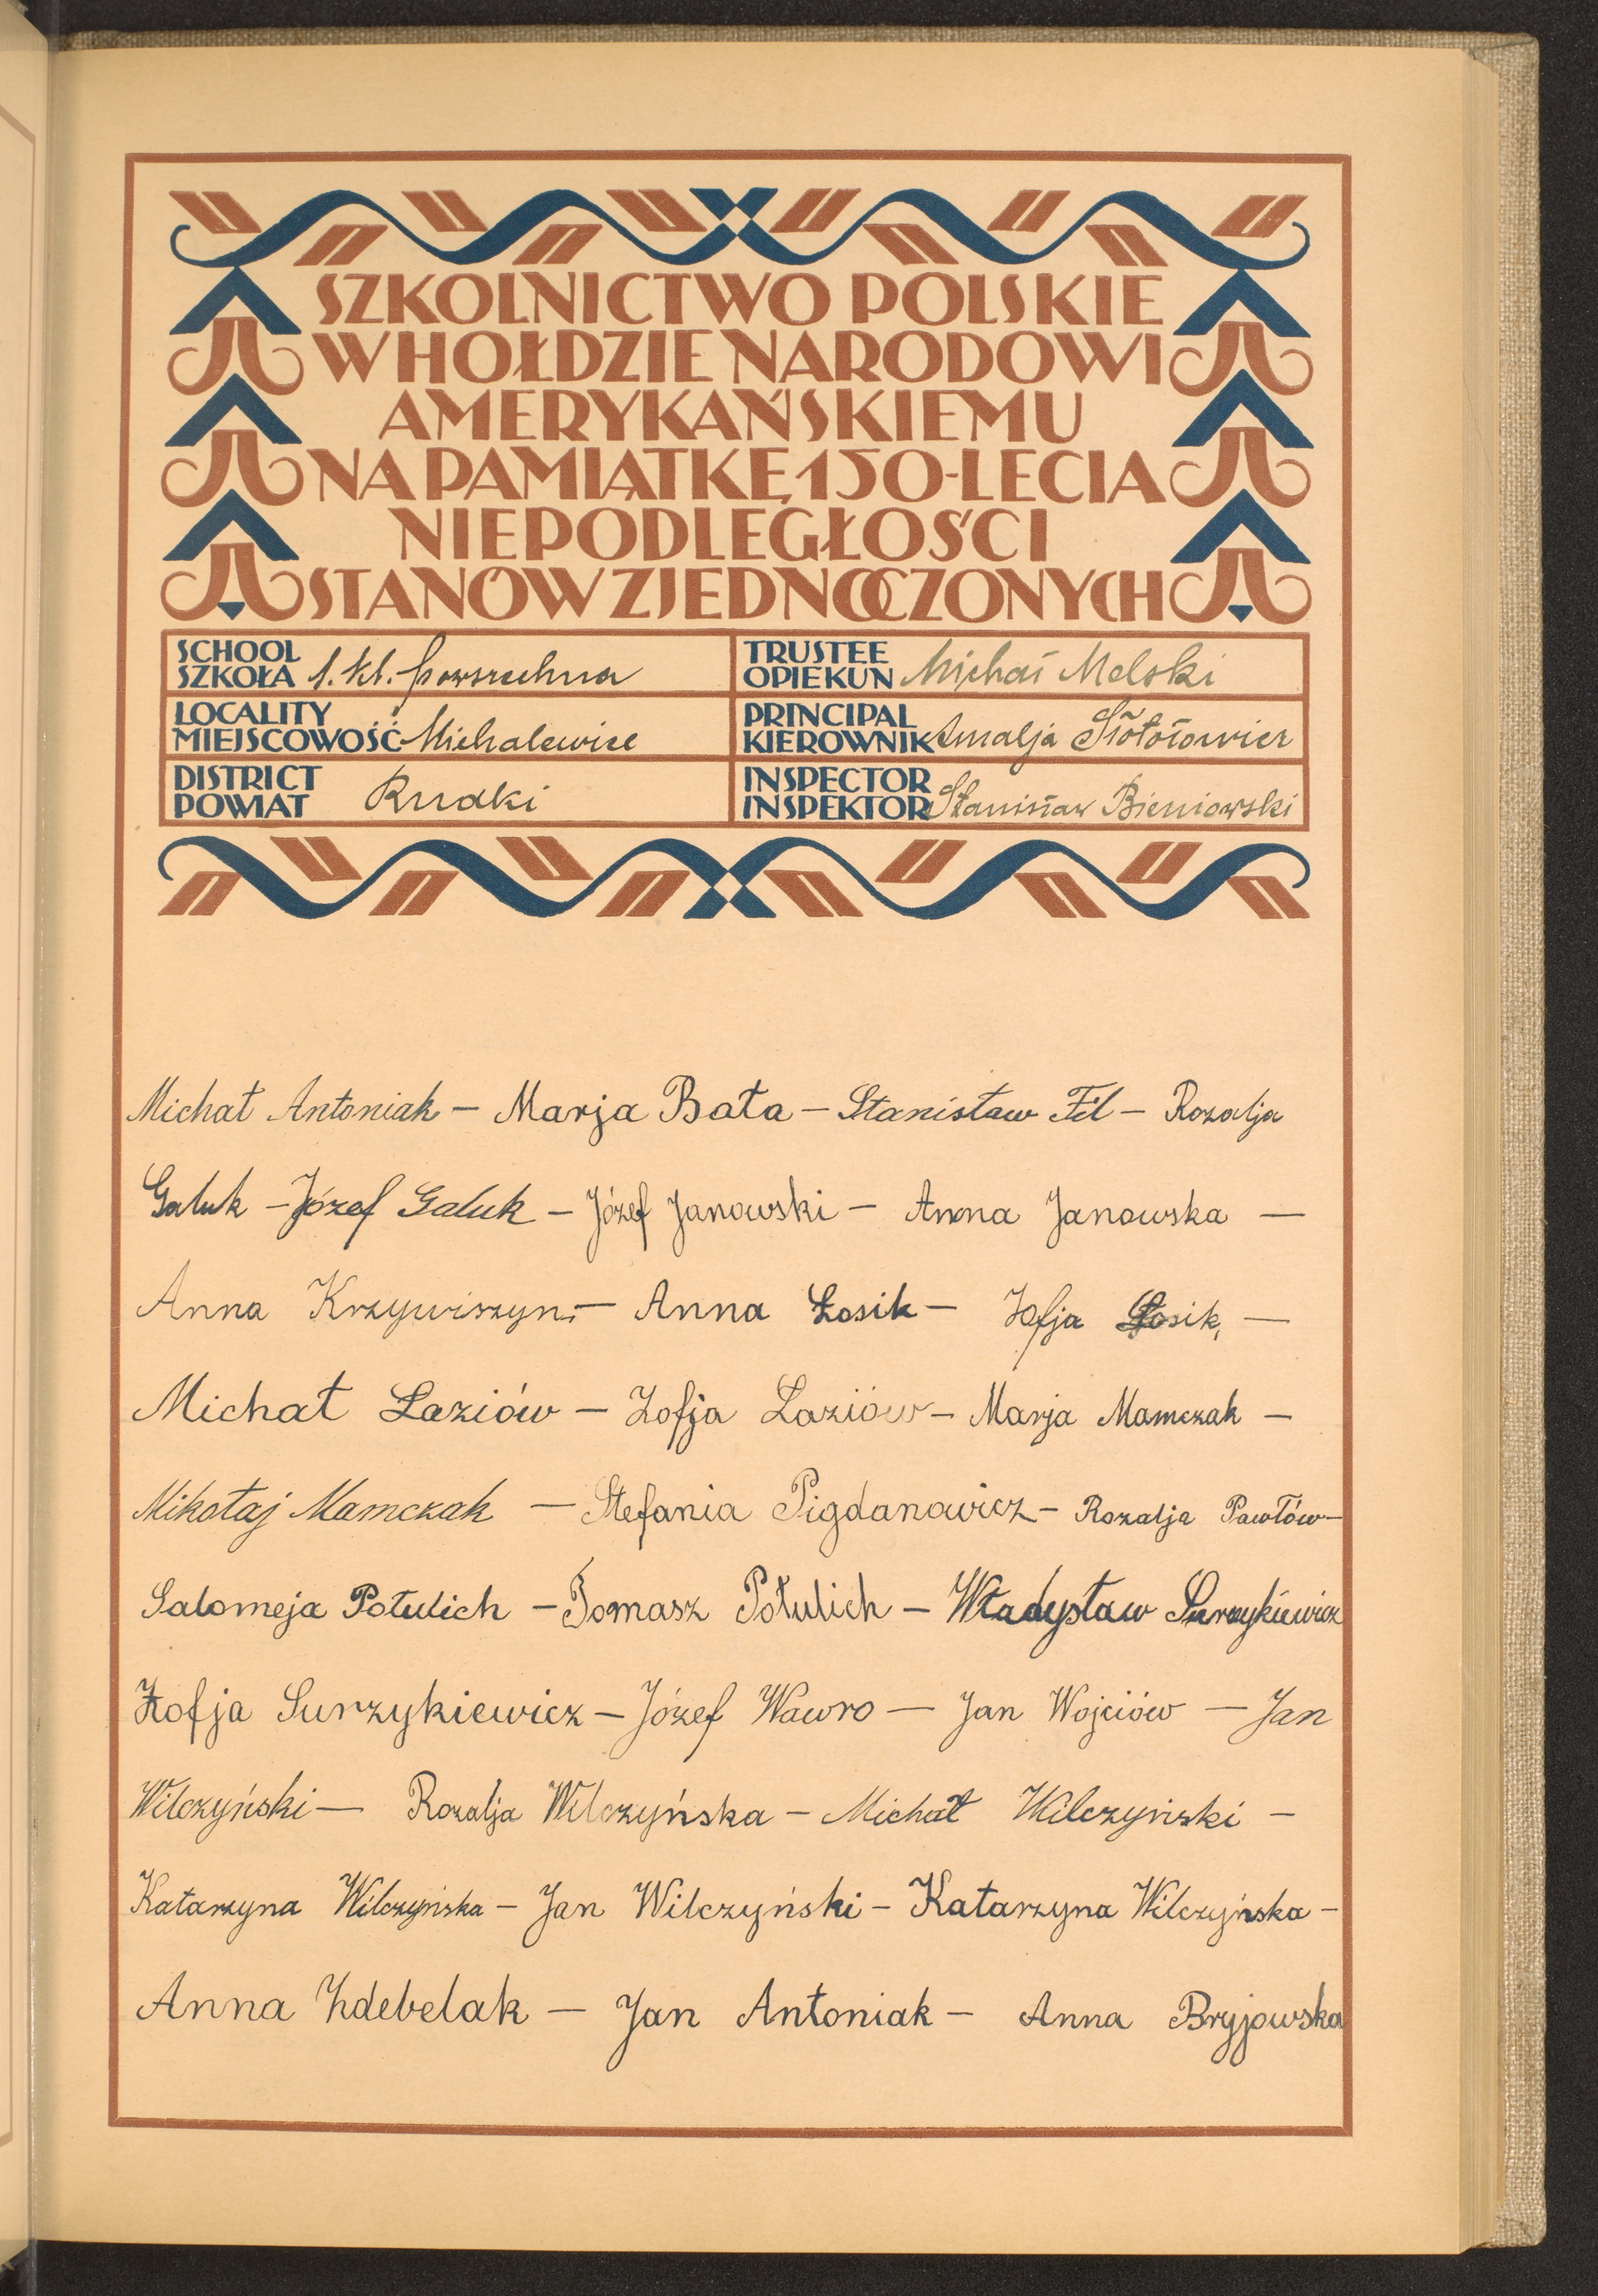 SZKOLNICTWO POLSKIE
W HOŁDZIE NARODOWI
AMERYKAŃSKIEMU
NA PAMIĄTKĘ 150-LECIA
NIEPODLEGŁOŚCI
STANÓW ZJEDNOCZONYCH
SCHOOL
SZKOŁA 1. kl. powszechna
TRUSTEE
OPIEKUN Michał Melski
LOCALITY
MIEJSCOWOŚĆ Michalewice
PRINCIPAL
KIEROWNIK Amalja
DISTRICT
POWIAT Rudki
INSPECTOR
INSPEKTOR Stanisław Bieniowski
Michał Antoniak – Marja Bata – Stanisław Fil – Rozalja
Galuk – Józef Galuk – Józef Janowski – Anna Janowska –
Anna Krzywiszyn – Anna Łosik – Zofja Łosik, –
Michał Łaziów – Zofja Łaziów – Marja Mamczak –
Mikołaj Mamczak – Stefania Pigdanowicz – Rozalja Pawłów –
Salomeja Potulich – Tomasz Potulich – Władysław Surzykiewicz
Zofja Surzykiewicz – Józef Wawro – Jan Wojciów – Jan
Wilczyński – Rozalja Wilczyńska – Michał Wilczyński –
Katarzyna Wilczyńska – Jan Wilczyński – Katarzyna Wilczyńska –
Anna Zdebelak – Jan Antoniak – Anna Bryjowska